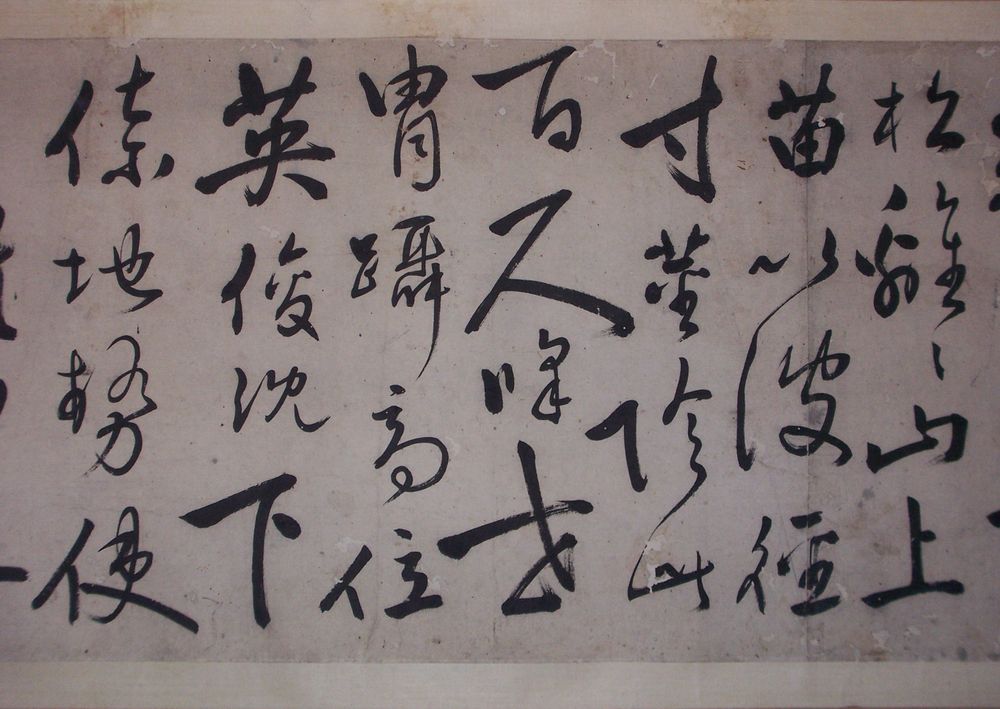 松離〻山上
苗以彼徑
寸莖蔭此
百尺條世
胄躡高位
英俊沈下
僚地勢使